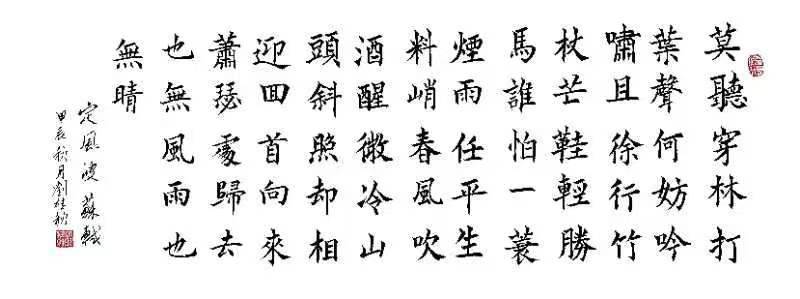 莫聽穿林打
葉聲何妨吟
嘯且徐行竹
杖芒鞋輕勝
馬誰怕一蓑
煙雨任平生
料峭春風吹
酒醒微冷山
頭斜照却相
迎回首向來
蕭瑟處歸去
也無風雨也
無晴
定風波蘇軾
甲辰秋月劉